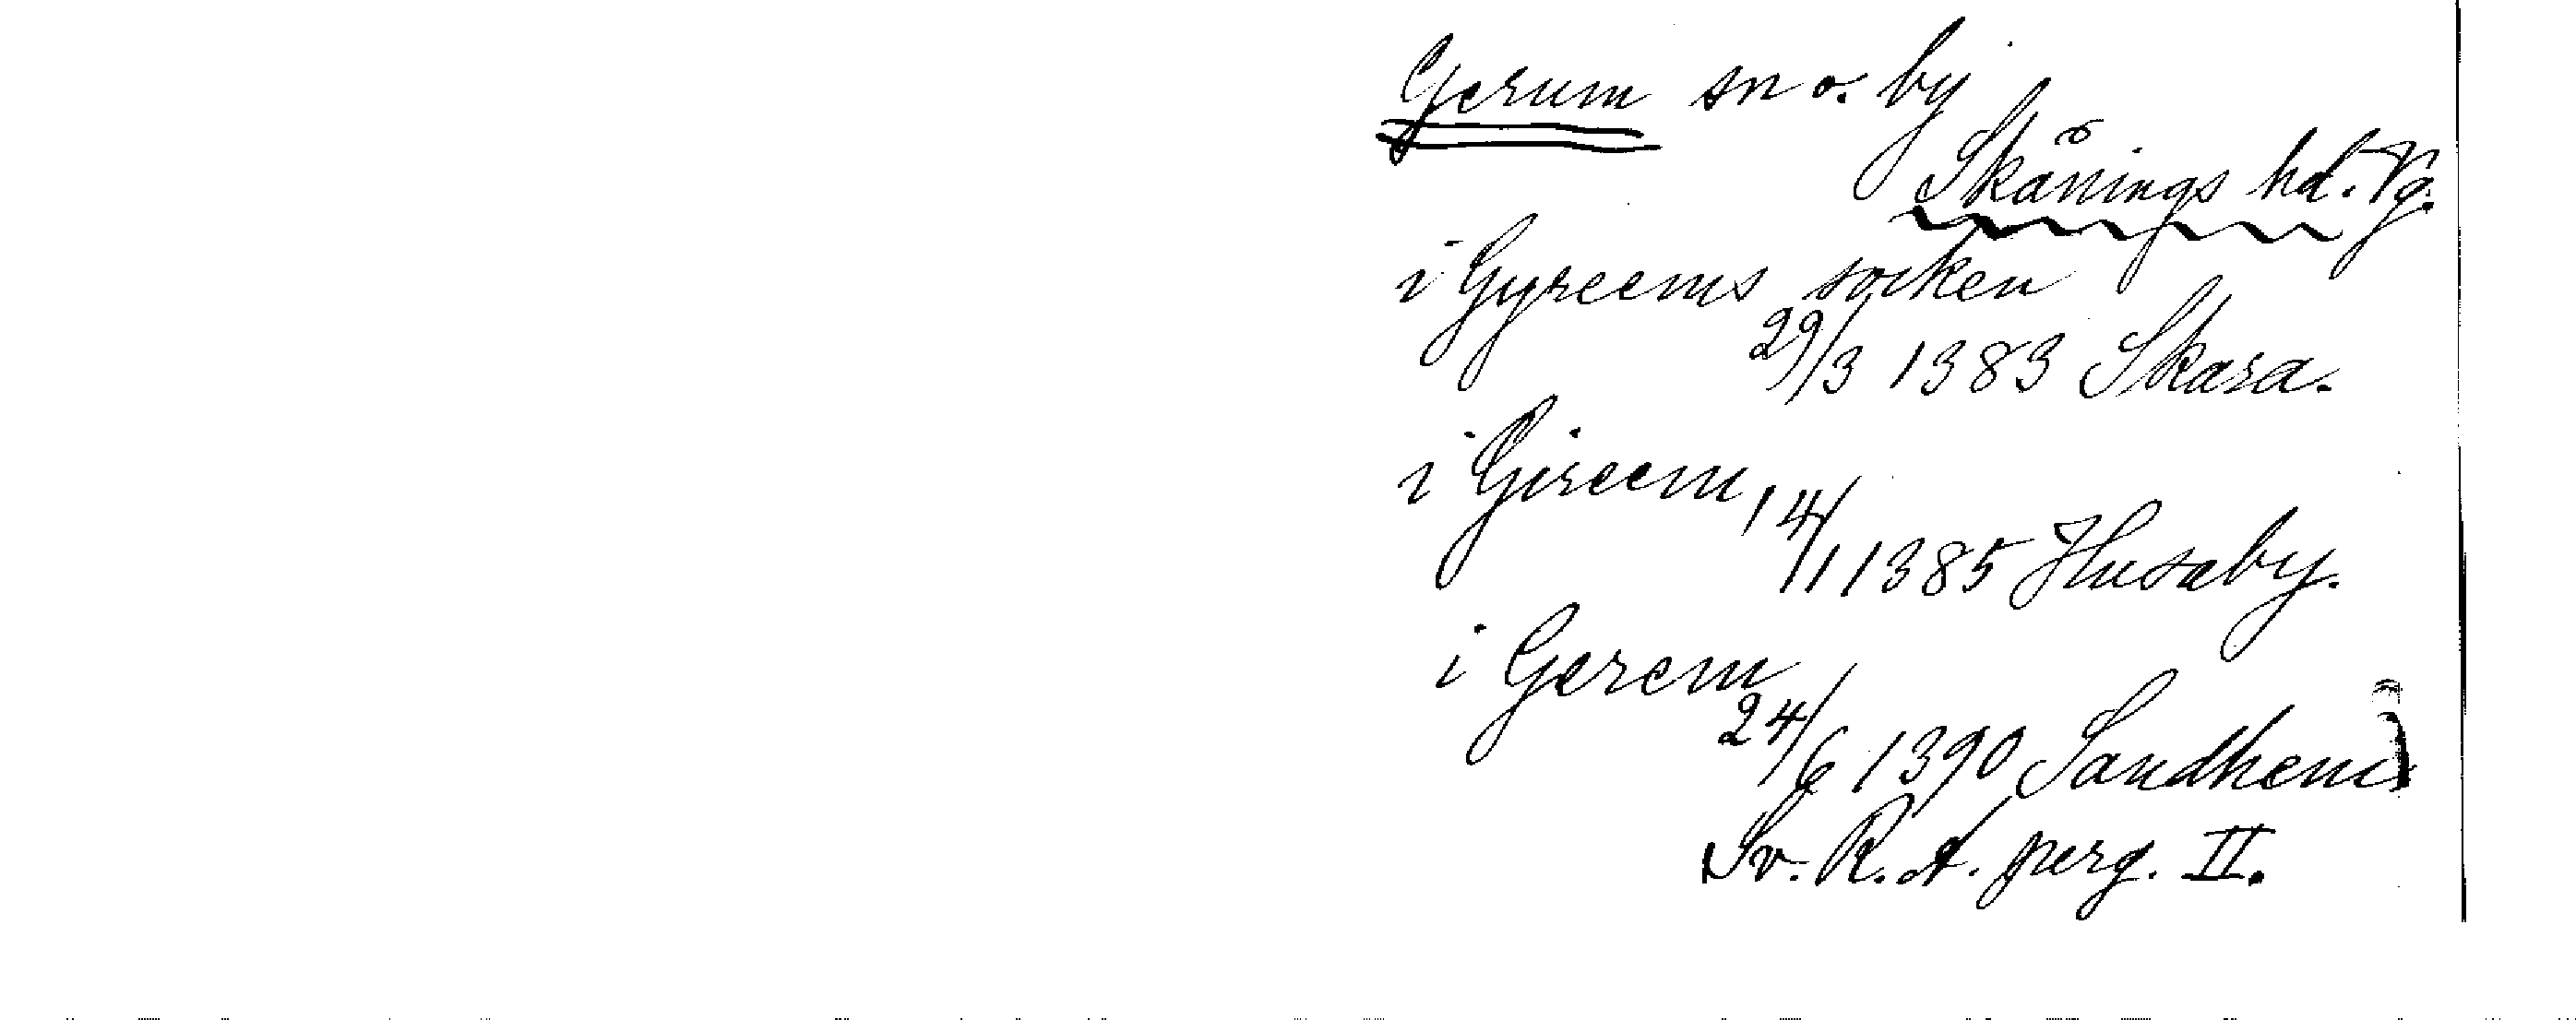 Gerum sn o. by
Skånings hd. Vg.
i Gyreems socken
29/3 1383 Skara.
i Gireem
14/1 1385 Husaby.
i Gerem
24/6 1390 Sandhem
Sv. R. A. perg. II.